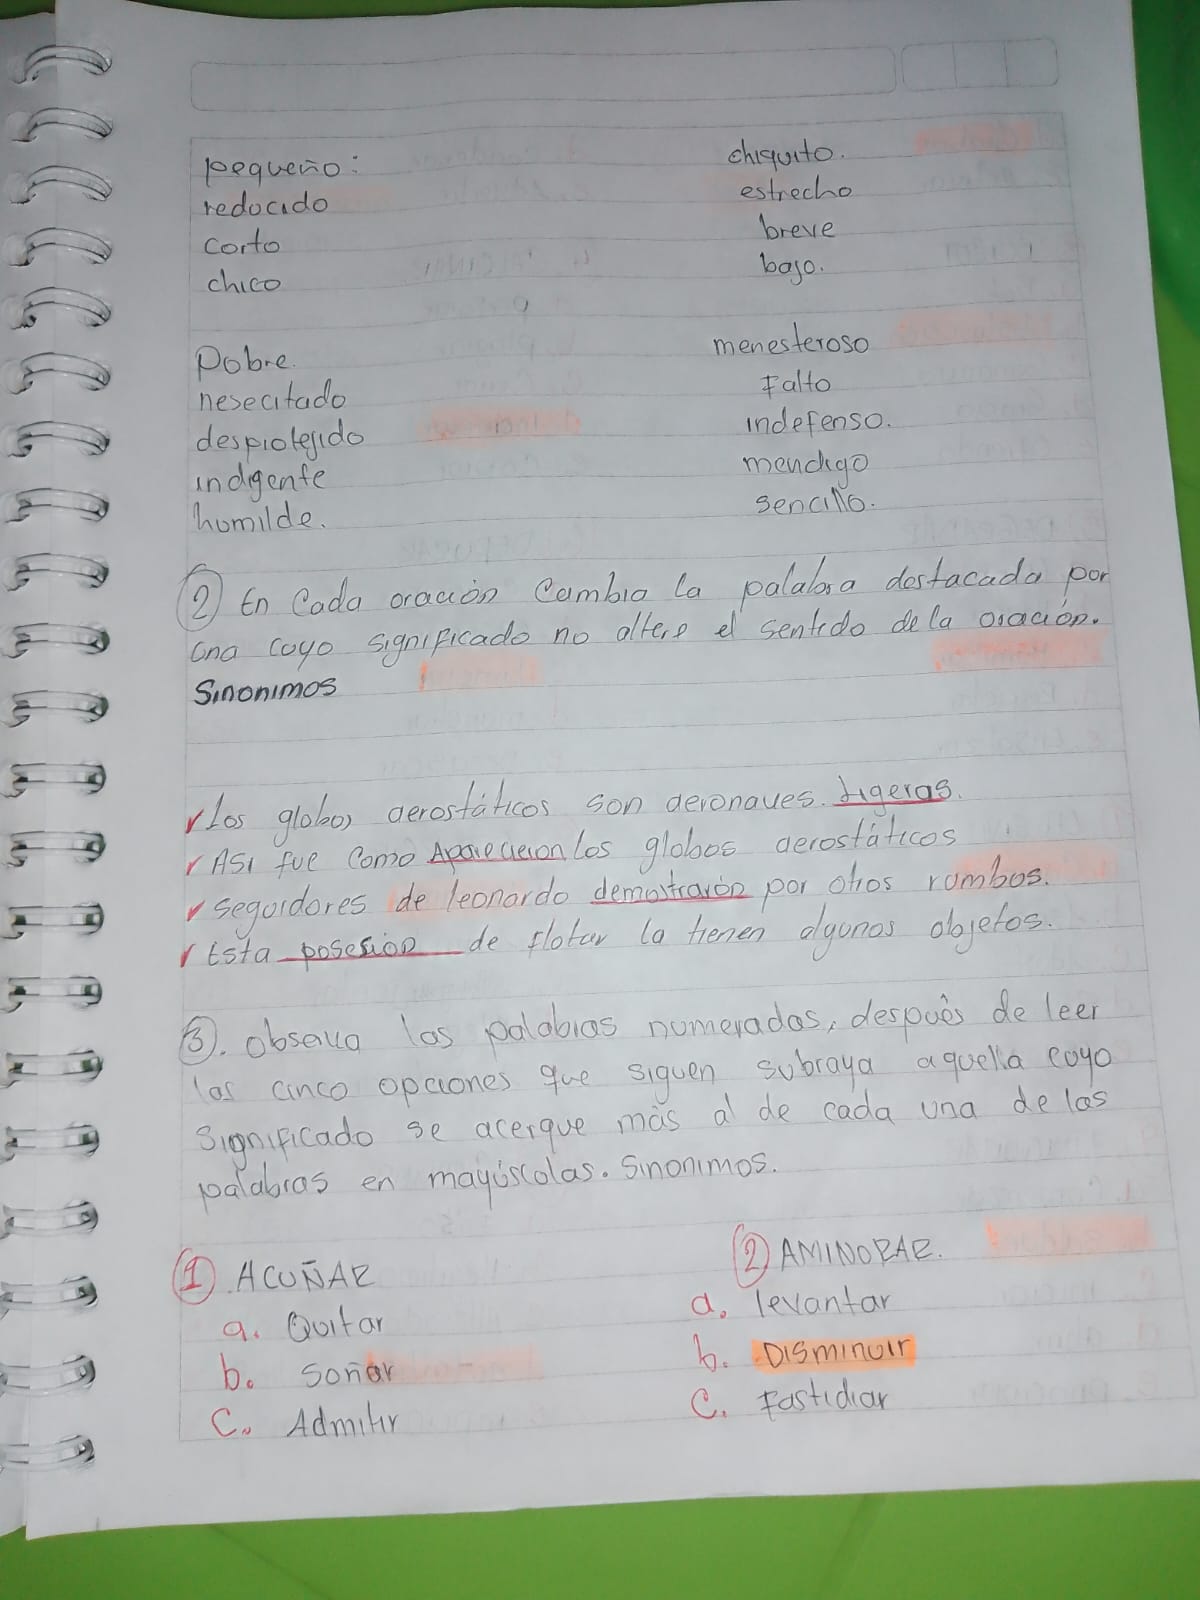 pequeño:
reducido
corto
chico
chiquito.
estrecho
breve
bajo.
Pobre.
nesecitado
desprotejido
indigente
humilde.
menesteroso
Falto
indefenso.
mendigo
sencillo.
2) En Cada oración Cambia la palabra destacada por
una cuyo significado no altere el sentido de la oración.
Sinonimos
Los globos aerostáticos son aeronaves ligeras.
Asi fue Como Aparecieron los globos aerostáticos
seguidores de leonardo demostrarón por otros rumbos.
Esta posesion de flotar la tienen algunos objetos.
3). observa las palabras numeradas, después de leer
las cinco opciones que siguen subraya aquella cuyo
significado se acerque más al de cada una de las
palabras en mayúscolas. Sinonimos.
1) ACUÑAR
a. Quitar
b. Soñar
c. Admitir
2) AMINORAR.
a. levantar
b. Disminuir
c. Fastidiar